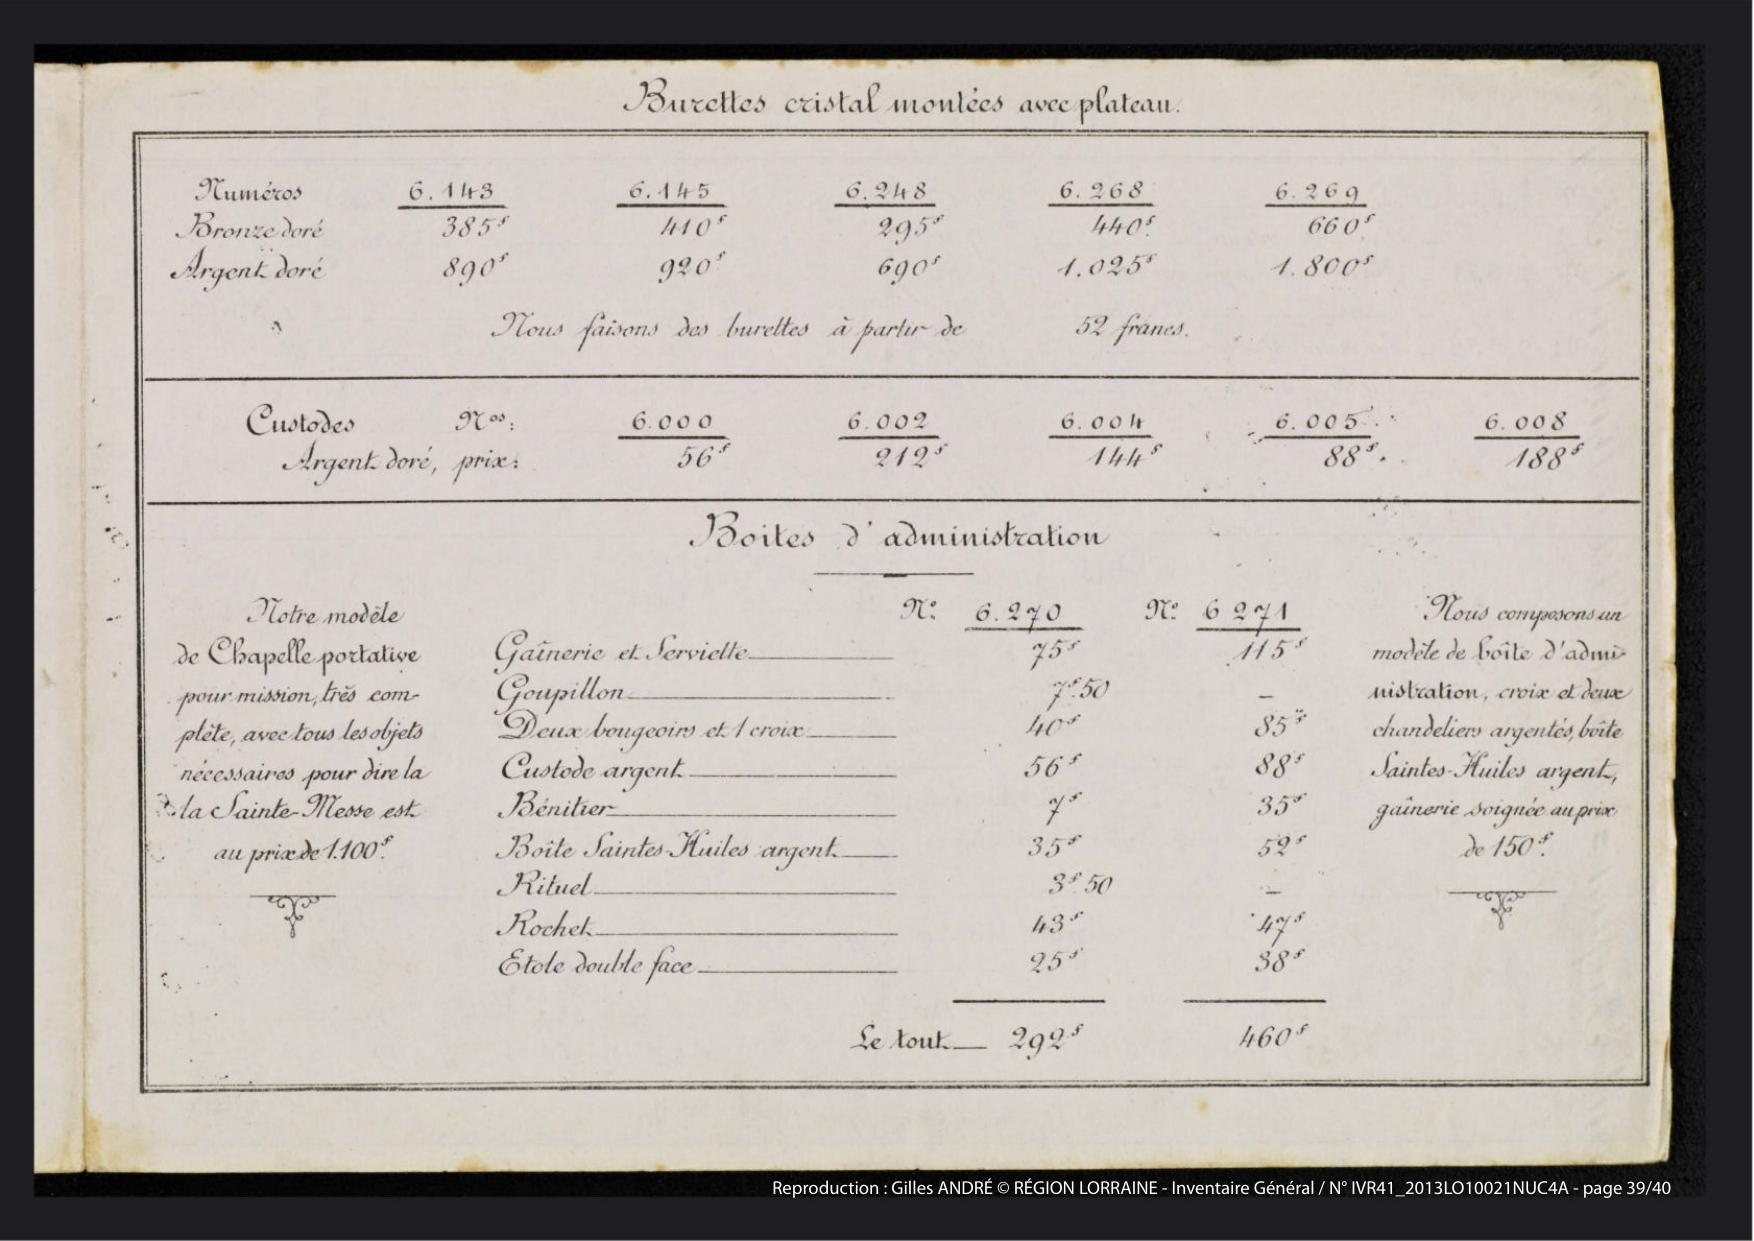 Burettes cristal montées avec plateau.
Numéros 6.143 6.145 6.248 6.268 6.269
Bronze doré 385f 410f 295f 440f. 660f
Argent doré 890f 920f 690f 1.025f 1.800f
Nous faisons des burettes à partir de 52 francs.
Custodes Nos: 6.000 6.002 6.004 6.005 6.008
Argent doré, prix: 56f 212f 144f 88f. 188f
Boites d'administration
Notre modèle
de Chapelle portative
pour mission, très com-
plète, avec tous les objets
nécessaires pour dire la
la Sainte-Messe est
au prix de 1.100f.
No. 6.270 No. 6 271
Gaînerie et Serviette 75f 115f
Goupillon 7f.50 –
Deux bougeoirs et 1 croix 40f 85f
Custode argent 56f 88f
Bénitier 7f 35f
Boîte Saintes-Huiles argent 35f 52f
Rituel 3f.50 –
Rochet 43f 47f
Etole double face 25f 38f
Le tout 292f 460f
Nous composons un
modèle de boîte d'admi-
nistration, croix et deux
chandeliers argentés, boîte
Saintes-Huiles argent,
gaînerie soignée au prix
de 150f.
Reproduction : Gilles ANDRÉ © RÉGION LORRAINE - Inventaire Général / N° IVR41_2013LO10021NUC4A - page 39/40